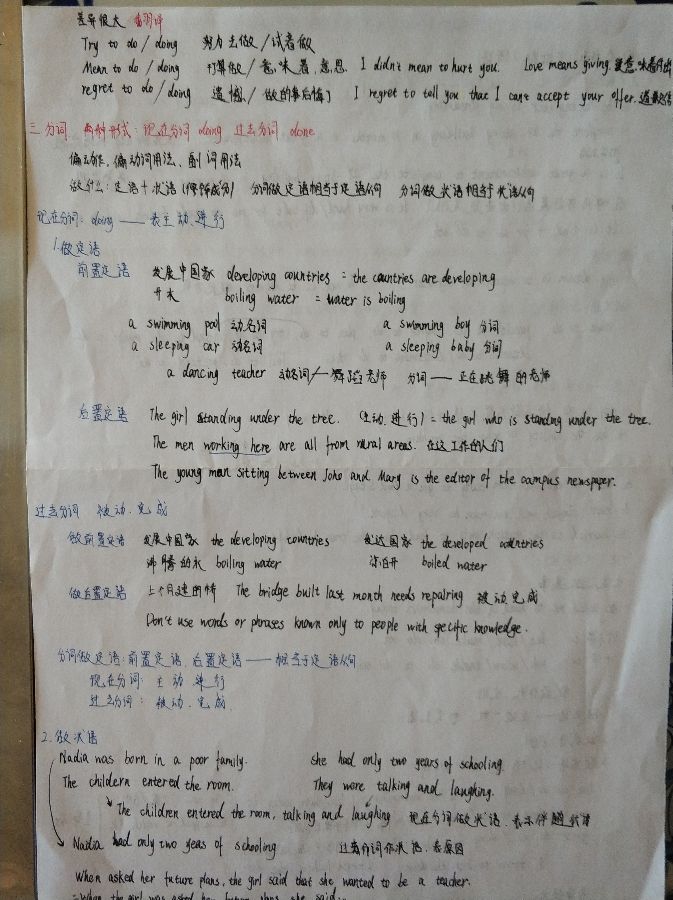 差异很大
Try to do / doing 努力去做 / 试着做
Mean to do / doing 打算做 / 意味着, 意思. I didn't mean to hurt you. Love means giving. 爱意味着付出
regret to do / doing 遗憾 / 做的事后悔了 I regret to tell you that I can't accept your offer.
三 分词 两种形式: 现在分词 doing 过去分词 done
偏动作, 偏动词用法、副词用法
做什么: 定语 + 状语 (修饰成分) 分词做定语相当于定语从句 分词做状语相当于状语从句
现在分词: doing —— 表主动、进行
1.做定语
前置定语 发展中国家 developing countries = the countries are developing
开水 boiling water = water is boiling
a swimming pool 动名词 a swimming boy 分词
a sleeping car 动名词 a sleeping baby 分词
a dancing teacher 动名词 — 舞蹈老师 分词 —— 正在跳舞的老师
后置定语 The girl standing under the tree. (主动.进行) = the girl who is standing under the tree.
The men working here are all from rural areas. 在这工作的人们
The young man sitting between John and Mary is the editor of the campus newspaper.
过去分词 被动.完成
做前置定语 发展中国家 the developing countries 发达国家 the developed countries
沸腾的水 boiling water 凉白开 boiled water
做后置定语 上个月建的桥 The bridge built last month needs repairing 被动完成
Don't use words or phrases known only to people with specific knowledge.
分词做定语: 前置定语、后置定语 —— 相当于定语从句
现在分词: 主动 进行
过去分词: 被动.完成.
2.做状语
Nadia was born in a poor family. She had only two years of schooling.
The childern entered the room. They were talking and laughing.
The children entered the room, talking and laughing 现在分词做状语.表示伴随状语
Nadia had only two yeas of schooling 过去分词作状语.表原因
When asked her future plans, the girl said that she wanted to be a teacher.
=When the girl was asked her future plans, she said